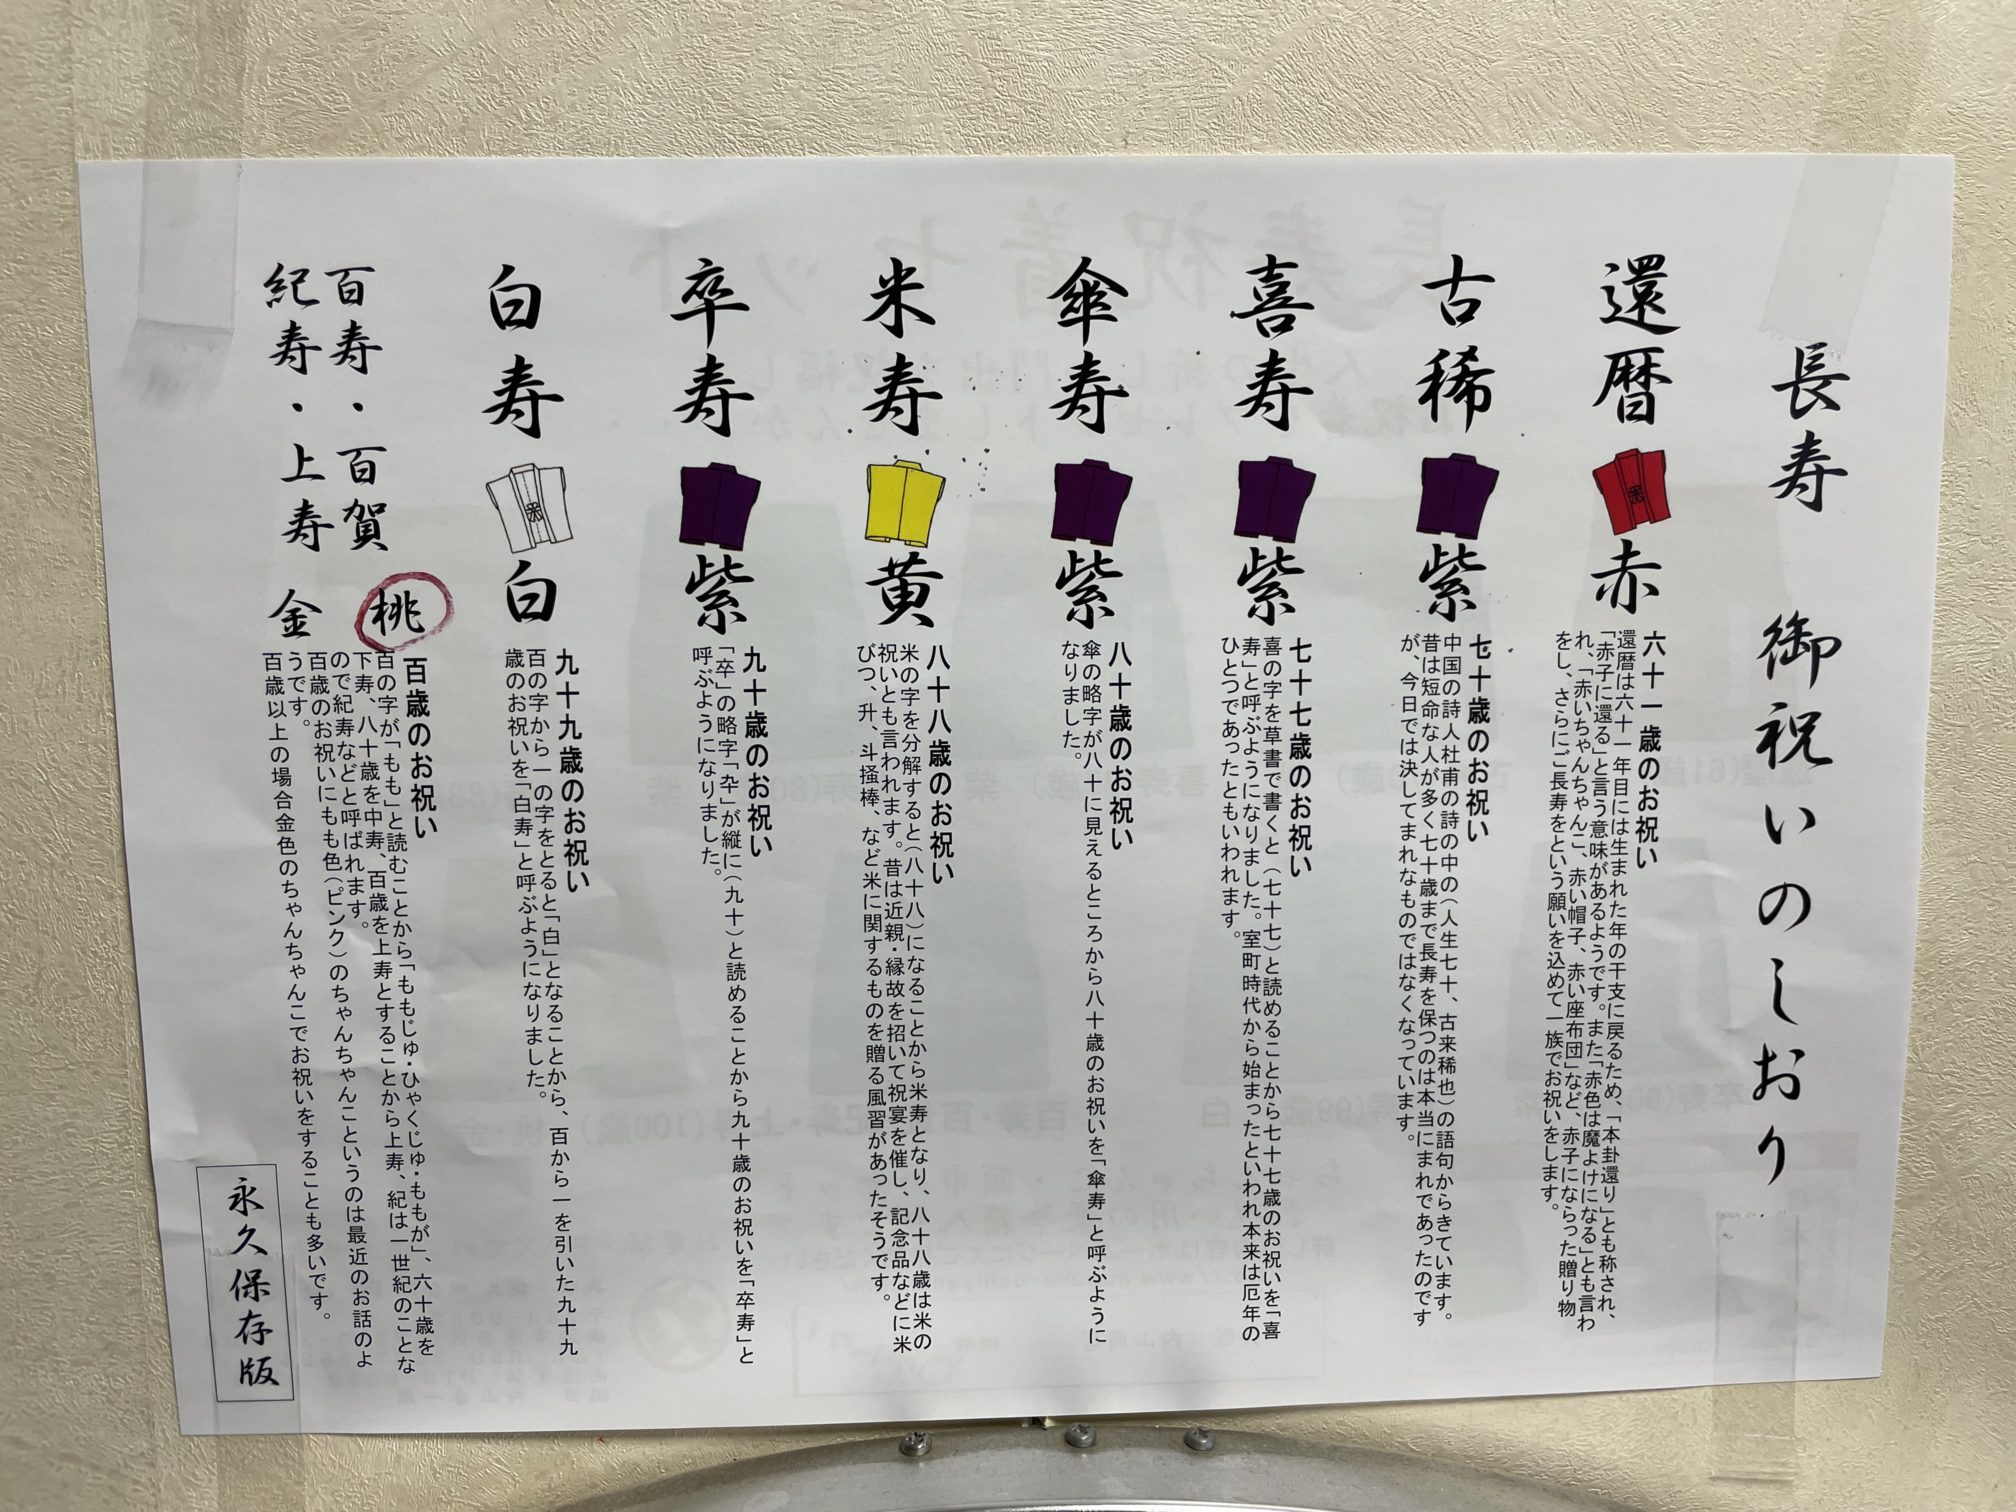 長寿 御祝いのしおり
還暦
赤
六十一歳のお祝い
還暦は六十一年目には生まれた年の干支に戻るため、「本卦還り」とも称され、
「赤子に還る」と言う意味があるようです。また「赤色は魔よけになる」とも言わ
れ、「赤いちゃんちゃんこ、赤い帽子、赤い座布団」など、赤子にならった贈り物
をし、さらにご長寿をという願いを込めて一族でお祝いをします。
古稀
紫
七十歳のお祝い
中国の詩人杜甫の詩の中の(人生七十、古来稀也)の語句からきています。
昔は短命な人が多く七十歳まで長寿を保つのは本当にまれであったのです
が、今日では決してまれなものではなくなっています。
喜寿
紫
七十七歳のお祝い
喜の字を草書で書くと(七十七)と読めることから七十七歳のお祝いを「喜
寿」と呼ぶようになりました。室町時代から始まったといわれ本来は厄年の
ひとつであったともいわれます。
傘寿
紫
八十歳のお祝い
傘の略字が八十に見えるところから八十歳のお祝いを「傘寿」と呼ぶように
なりました。
米寿
黄
八十八歳のお祝い
米の字を分解すると(八十八)になることから米寿となり、八十八歳は米の
祝いとも言われます。昔は近親・縁故を招いて祝宴を催し、記念品などに米
びつ、升、斗掻棒、など米に関するものを贈る風習があったそうです。
卒寿
紫
九十歳のお祝い
「卒」の略字「卆」が縦に(九十)と読めることから九十歳のお祝いを「卒寿」と
呼ぶようになりました。
白寿
白
九十九歳のお祝い
百の字から一の字をとると「白」となることから、百から一を引いた九十九
歳のお祝いを「白寿」と呼ぶようになりました。
百寿・百賀 桃
紀寿・上寿 金
百歳のお祝い
百の字が「もも」と読むことから「ももじゅ・ひゃくじゅ・ももが」、六十歳を
下寿、八十歳を中寿、百歳を上寿とすることから上寿、紀は一世紀のことな
ので紀寿などと呼ばれます。
百歳のお祝いにもも色(ピンク)のちゃんちゃんこというのは最近のお話のよ
うです。
百歳以上の場合金色のちゃんちゃんこでお祝いをすることも多いです。
永久保存版